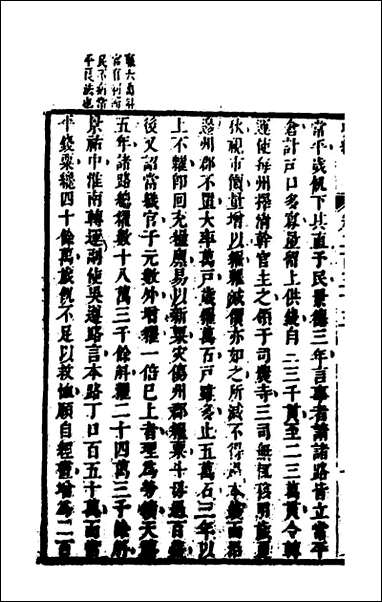 常平歲飢下其直予民景德三年言事者請諸路皆立常平
倉計戶口多寡量留上供錢自二三千貫至一二萬貫令轉
運使每州擇清幹官主之領于司農寺三司無輒移用歲夏
秋視市價量增以糴糶減價亦如之所減不得過本錢而沿
邊州郡不置大率萬戶歲糴萬石戶雖多止五萬石三年以
上不糶即回充糧廩易以新粟災傷州郡糶粟斗毋過百錢
後又詔當職官于元數外增糴一倍已上者理爲勞績天禧
五年諸路總糴數十八萬三千餘斛糶二十四萬三千餘斛
景祐中淮南轉運副使吳遵路言本路丁口百五十萬而常
平錢粟纔四十餘萬歲飢不足以救恤願自經畫增爲二百
平良法也